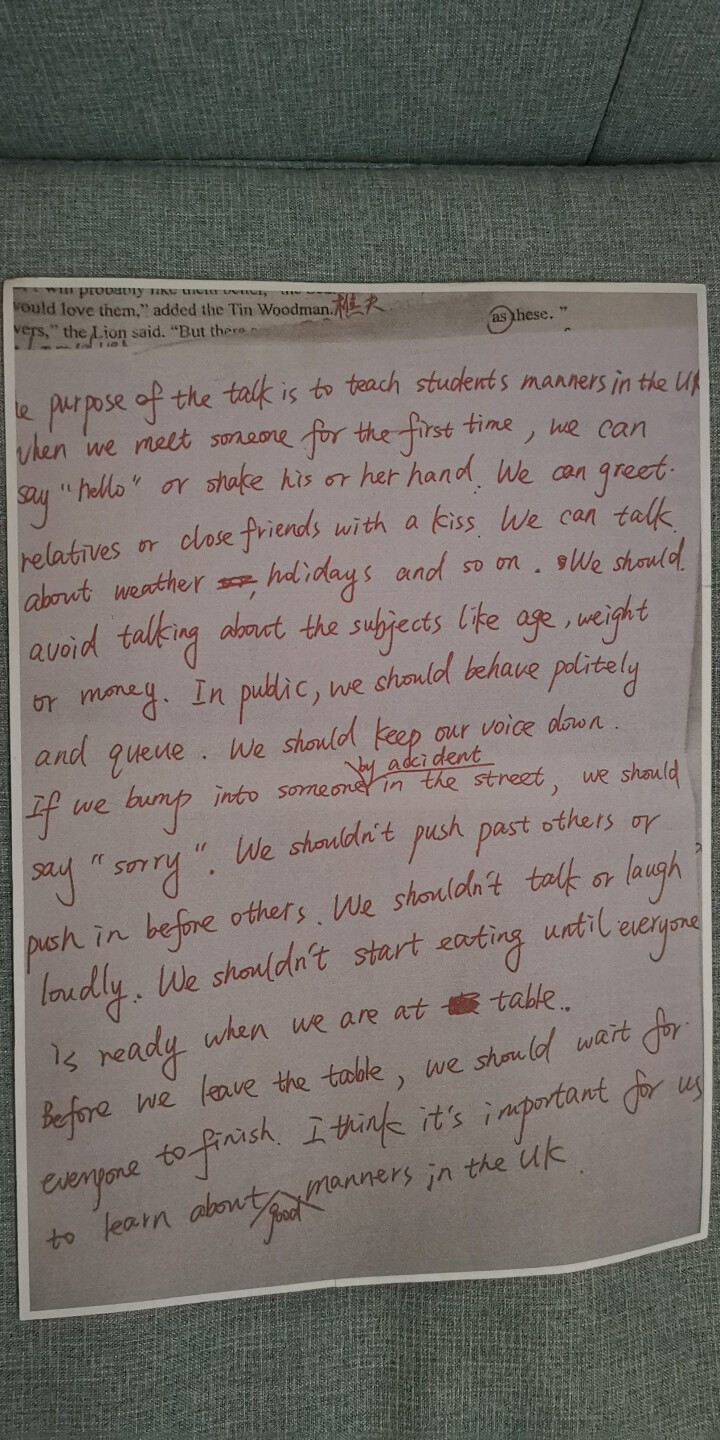 would love them,” added the Tin Woodman. 樵夫
vers,” the Lion said. “But there as these.”
e purpose of the talk is to teach students manners in the UK
when we meet someone for the first time, we can
say "hello" or shake his or her hand. We can greet
relatives or close friends with a kiss. We can talk
about weather, holidays and so on. We should
avoid talking about the subjects like age, weight
or money. In public, we should behave politely
and queue. We should keep our voice down.
by accident
If we bump into someone in the street, we should
say "sorry". We shouldn't push past others or
push in before others. We shouldn't talk or laugh
loudly. We shouldn't start eating until everyone
is ready when we are at table.
Before we leave the table, we should wait for
everyone to finish. I think it's important for us
to learn about good manners in the UK.